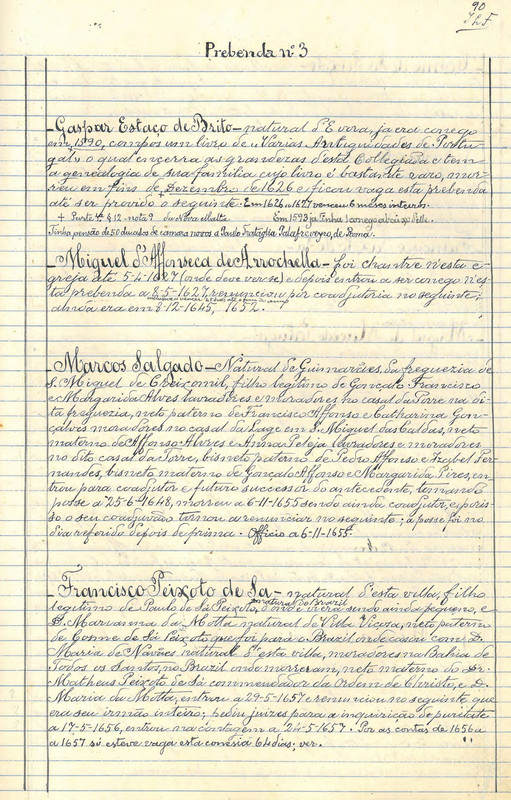 90
Prebenda nº 3
Gaspar Estaço de Brito — natural d'Evora, ja era conego
em 1590, compos um livro de "Varias Antiguidades de Portu-
gal" o qual encerra as grandezas d'esta Collegiada e tem
a genealogia de sua familia cujo livro é bastante raro, mor-
reu em fins de + Dezembro de 1626 e ficou vaga esta prebenda
até ser provido o seguinte. Em 1626 a 1627 venceu 6 meses inteiros.
+ Parte 4ª § 12 - nota 9 da Nova Malta. Em 1593 ja tinha 1 conego
Tinha pensão de 50 ducados de camara novos a Paulo de Roma.
Miguel d'Affonseca de Arrochella — foi chantre n'esta e-
greja até 5-4-1627 (onde deve ver-se) e depois entrou a ser conego n'es-
ta prebenda a 8-5-1627, renunciou por coadjutoria no seguinte;
ainda era em 8-12-1645, 1652.
Marcos Salgado — Natural de Guimarães, da freguezia de
S. Miguel de Creixomil, filho legitimo de Gonçalo Francisco
e Margarida Alves lavradores e moradores no casal da Torre na di-
ta freguezia, neto paterno de Francisco Affonso e Catharina Gon-
çalves moradores no casal da Lage em S. Miguel das Caldas, neto
materno de Affonso Alvres e Anna Peleja lavradores e moradores
no dito casal da Torre, bisneto paterno de Pedro Affonso e Izabel Fer-
nandes, bisneto materno de Gonçalo Affonso e Margarida Pires, en-
trou para coadjutor e futuro successor do antecedente, tomando
posse a 25-6-1648, morreu a 6-11-1655 sendo ainda coadjutor, e por is-
so o seu coadjuvado tornou a renunciar no seguinte; a posse foi no
dia referido depois de prima. Officio a 6-11-1655.
Francisco Peixoto de Sa — natural d'esta villa, filho
legitimo de Paulo de Sá Peixoto, natural do Brazil d'onde viera sendo ainda pequeno, e
D. Marianna da Motta natural de Villa Viçosa, neto paterno
de Cosme de Sá Peixoto que foi para o Brazil onde casou com D.
Maria de Navaes natural d'esta villa, moradores na Bahia de
Todos os Santos, no Brazil onde morreram, neto materno do Dr.
Matheus Peixoto de Sá commendador da Ordem de Christo, e D.
Maria da Motta, entrou a 29-5-1657 e renunciou no seguinte que
era seu irmão inteiro; pediu juizes para a inquirição de puritate
a 17-5-1656, entrou na contagem a 24-5-1657. Por as contas de 1656 a
a 1657 só esteve vaga esta conesia 64 dias; ver.